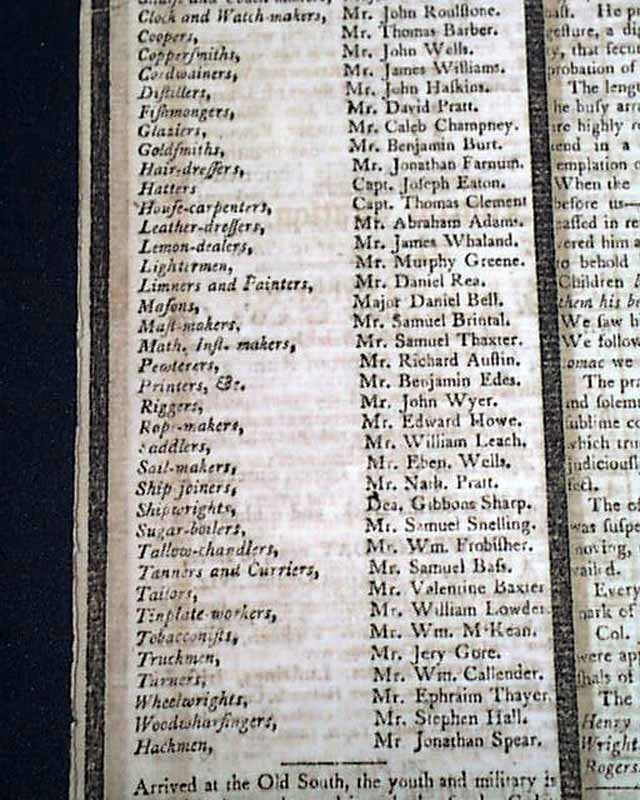 Clock and Watch-makers, Mr. John Roulſtone.
Coopers, Mr. Thomas Barber.
Copperſmiths, Mr. John Wells.
Cordwainers, Mr. James Williams.
Diſtillers, Mr. John Haſkins.
Fiſhmongers, Mr. David Pratt.
Glaziers, Mr. Caleb Champney.
Goldſmiths, Mr. Benjamin Burt.
Hair-dreſſers, Mr. Jonathan Farnum.
Hatters Capt. Joſeph Eaton.
Houſe-carpenters, Capt. Thomas Clement
Leather-dreſſers, Mr. Abraham Adams.
Lemon-dealers, Mr. James Whaland.
Lightermen, Mr. Murphy Greene.
Limners and Painters, Mr. Daniel Rea.
Maſons, Major Daniel Bell.
Maſt-makers, Mr. Samuel Brintal.
Math. Inſt. makers, Mr. Samuel Thaxter.
Pewterers, Mr. Richard Auſtin.
Printers, &c. Mr. Benjamin Edes.
Riggers, Mr. John Wyer.
Rope-makers, Mr. Edward Howe.
Saddlers, Mr. William Leach.
Sail-makers, Mr. Eben. Wells.
Ship joiners, Mr. Nath. Pratt.
Shipwrights, Dea. Gibbons Sharp.
Sugar-boilers, Mr. Samuel Snelling.
Tallow-chandlers, Mr. Wm. Frobiſher.
Tanners and Curriers, Mr. Samuel Baſs.
Tailors, Mr. Valentine Baxter
Tinplate-workers, Mr. William Lowder.
Tobacconiſts, Mr. Wm. M'Kean.
Truckmen, Mr. Jery Gore.
Turners, Mr. Wm. Callender.
Wheelwrights, Mr. Ephraim Thayer.
Woodwharfingers, Mr. Stephen Hall.
Hackmen, Mr Jonathan Spear.
Arrived at the Old South, the youth and military is
He p
a di
that ſecu
probation of
The leng
he buſy arr
are highly r
end in a
When the
before us—
ered him a
to behold
Children
them his be
We ſaw h
We follow
omac we
The pra
and ſolemn
ſublime co
which tru
judiciouſl
The ef
was ſuſpe
Every
mark of
Col.
were app
The
Henry
Wright
Rogers.